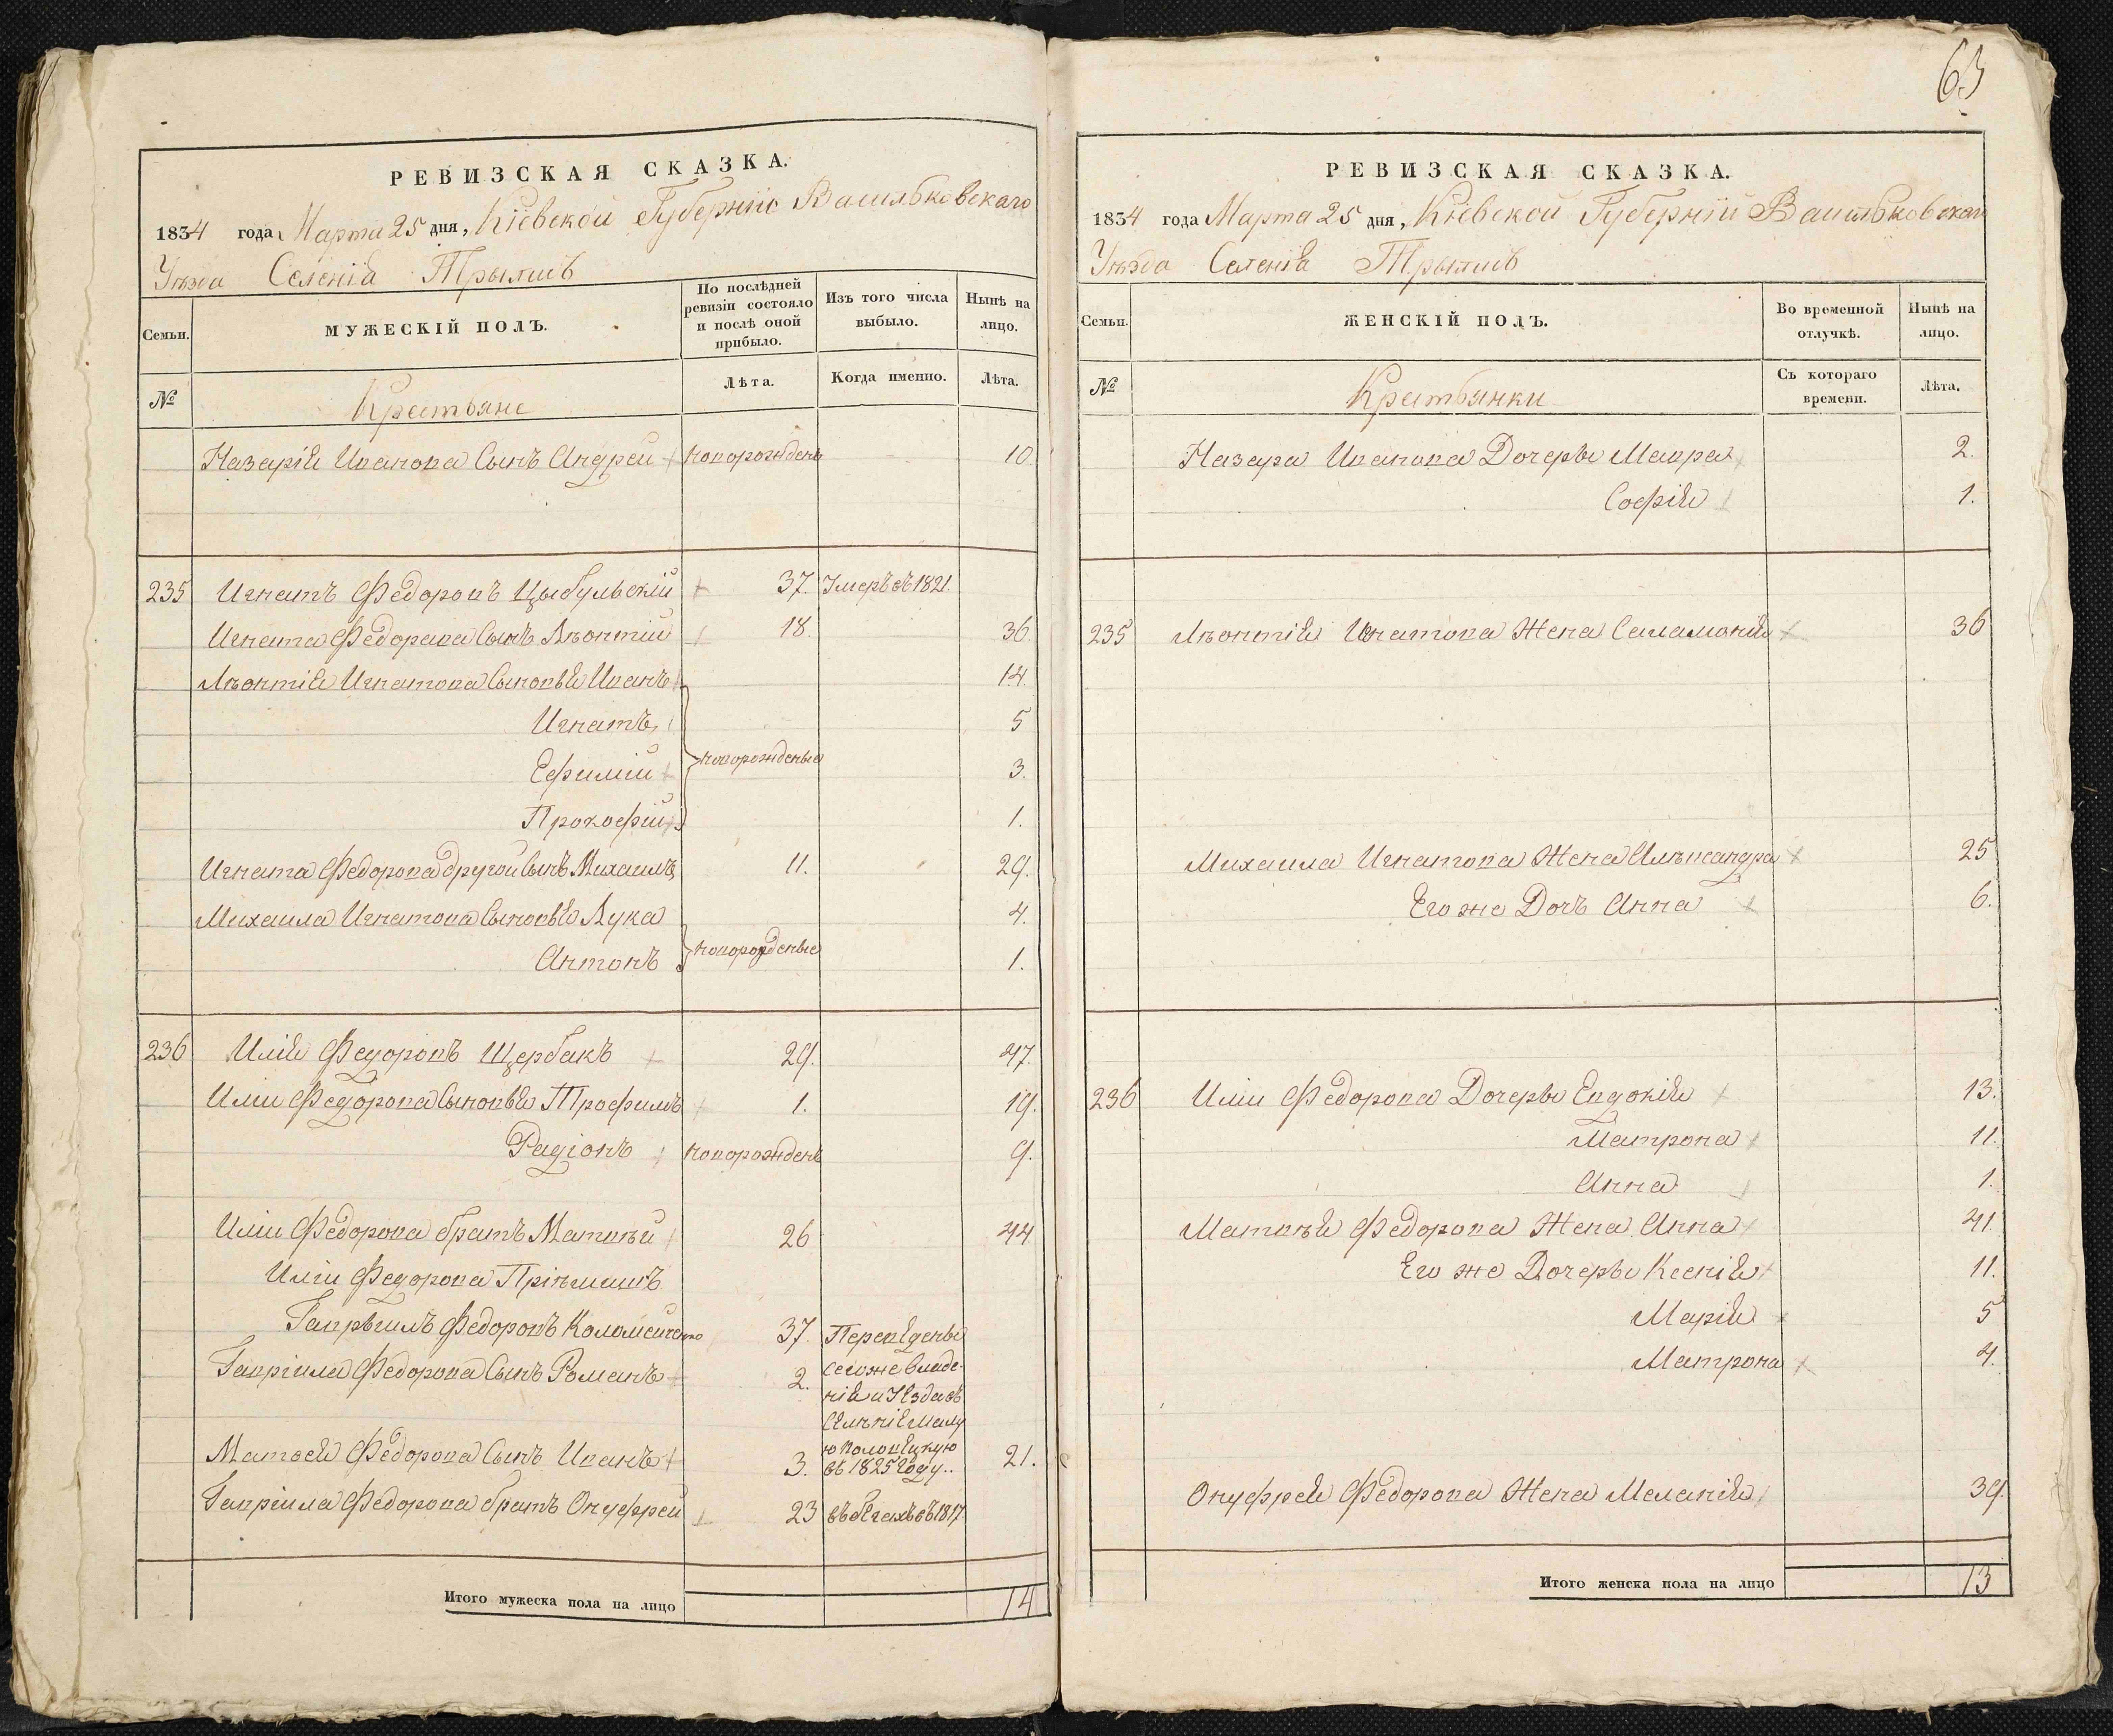 РЕВИЗСКАЯ СКАЗКА.
1834 года Марта 25 дня, Кіевской Губерніи Васильковскаго
Уѣзда Селенія Трылисъ
Семьи.
МУЖЕСКІЙ ПОЛЪ.
По послѣдней ревизіи состояло и послѣ оной прибыло.
Изъ того числа выбыло.
Нынѣ на лицо.
№
Крестьяне
Лѣта.
Когда именно.
Лѣта.
Назарія Иванова Сынъ Андрей новорожденъ 10
235 Игнатъ Федоровъ Цыбульскій 37. Умеръ въ 1821.
Игната Федорова Сынъ Лѣонтій 18. 36
Лѣонтія Игнатова Сыновья Иванъ 14.
Игнатъ 5
Ефимій новорожденые 3.
Прокофій 1.
Игната Федорова другой Сынъ Михаилъ 11. 29.
Михаила Игнатова Сыновья Лука 4.
Антонъ новорожденые 1.
236 Илія Федоровъ Щербакъ 29. 47.
Иліи Федорова Сыновья Трофимъ 1. 19.
Радіонъ новорожденъ 9.
Иліи Федорова братъ Матвѣй 26 44
Иліи Федорова Пріемышъ
Гаврыилъ Федоровъ Коломейченко 37. Переведены
Гавріила Федорова Сынъ Романъ 2. сегоже владе-
нія и Уезда въ
Имѣніе Малу
ю Половецкую
Матвея Федорова Сынъ Иванъ 3. въ 1825 году.. 21.
Гавріила Федорова братъ Онуфрей 23 въ бегахъ въ 1817
Итого мужеска пола на лицо 14
63
РЕВИЗСКАЯ СКАЗКА.
1834 года Марта 25 дня, Кіевской Губерніи Васильковскаго
Уѣзда Селенія Трылисъ
Семьи.
ЖЕНСКІЙ ПОЛЪ.
Во временной отлучкѣ.
Нынѣ на лицо.
№
Крестьянки
Съ котораго времени.
Лѣта.
Назара Иванова Дочеры Мавра 2.
Софія 1.
235 Лѣонтія Игнатова Жена Саламонія 36
Михаила Игнатова Жена Алѣксандра 25
Его же Дочъ Анна 6.
236 Иліи Федорова Дочеры Евдокія 13.
Матрона 11.
Анна 1.
Матвѣя Федорова Жена Анна 41
Его же Дочеры Ксенія 11.
Марія 5
Матрона 4.
Онуфрея Федорова Жена Меланія 39.
Итого женска пола на лицо 13